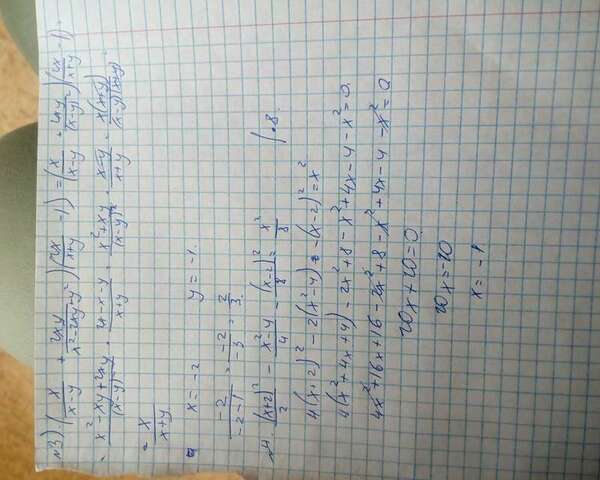 №3). (x/(x-y) + 2xy/(x²-2xy+y²))(2x/(x+y) -1) = (x/(x-y) + 2xy/(x-y)²)(2x/(x+y) -1) =
= (x²-xy+2xy)/(x-y)² · (2x-x-y)/(x+y) = (x²+xy)/(x-y)² · (x-y)/(x+y) = x(x+y)/((x-y)(x+y)) =
= x/(x+y)
x = -2 y = -1.
-2/(-2-1) = -2/-3 = 2/3.
№4. (x+2)²/2 - (x²-4)/4 - (x-2)²/8 = x²/8 | •8.
4(x+2)² - 2(x²-4) - (x-2)² = x²
4(x²+4x+4) - 2x²+8 - x²+4x-4 - x² = 0.
4x²+16x+16 - 2x²+8 - x²+4x-4 - x² = 0
20x+20=0.
20x=-20
x = -1